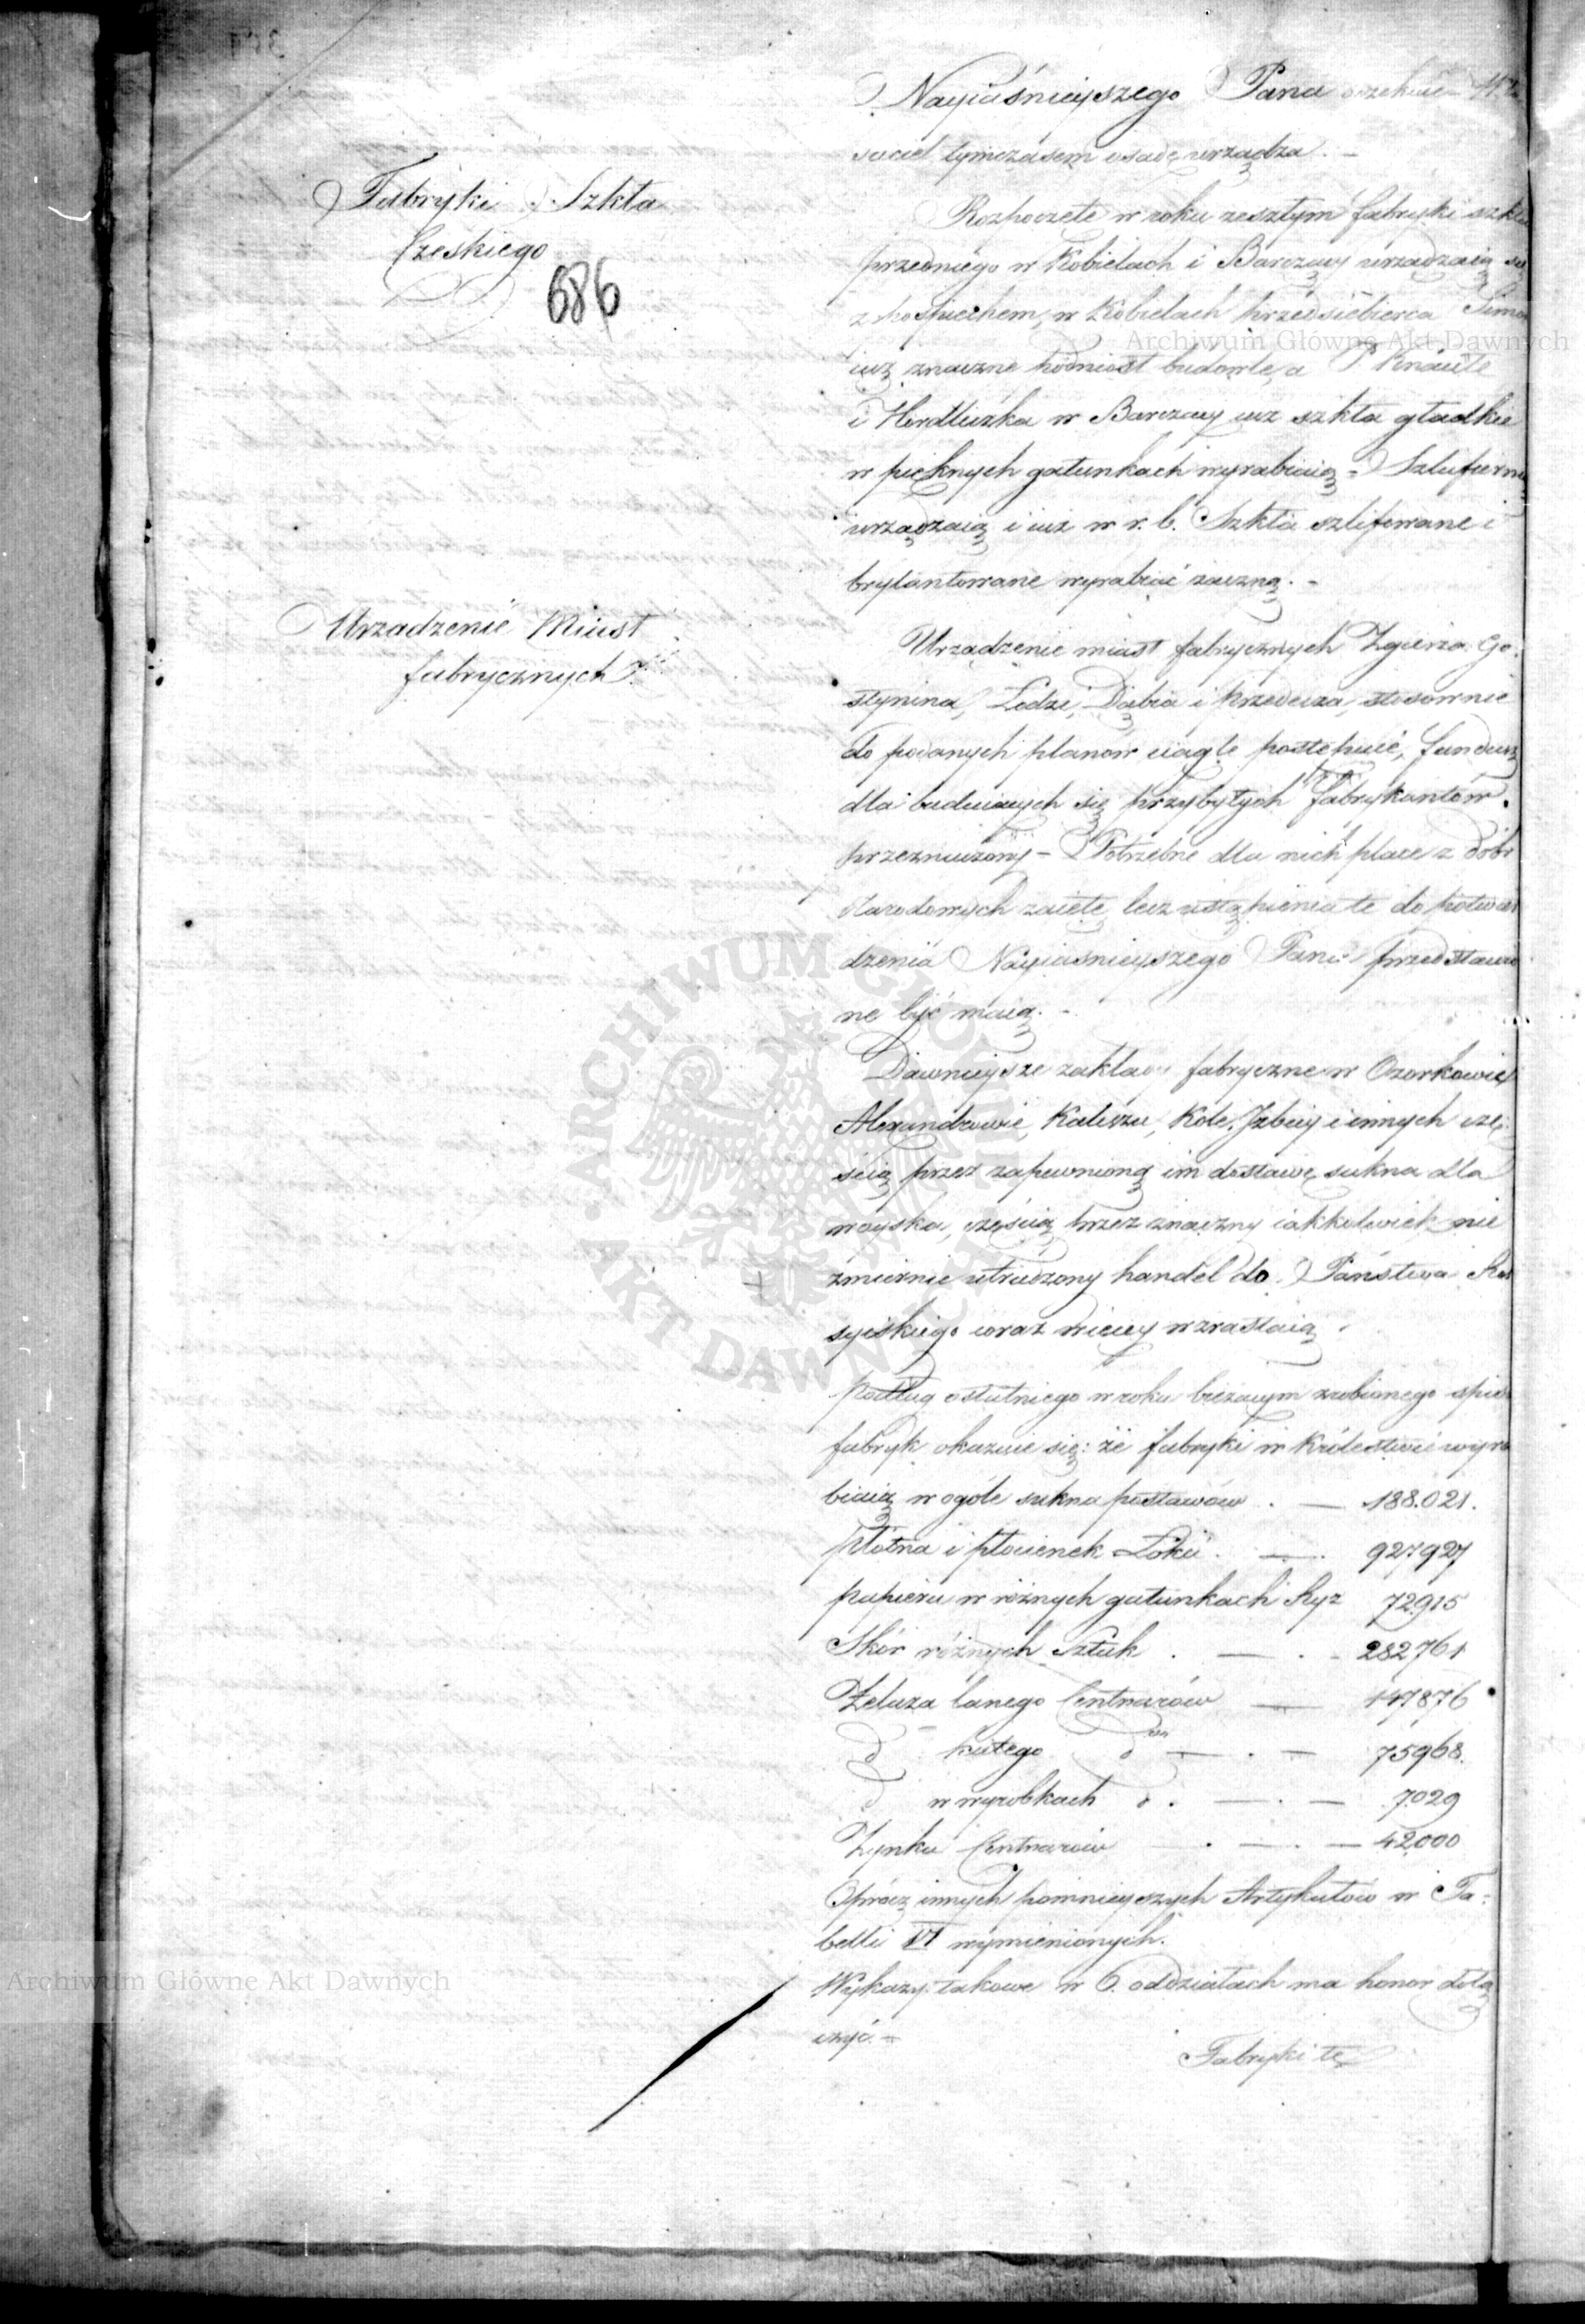 Nayiaśnieyszego Pana oczekuie
sąciel tymczasem osadę urządza. –
Fabryki Szkła
Czeskiego
686
Rozpoczęte w roku zesztym fabryki szkła
przedniego w Kobielach i Barczący urządzaią się
z pospiechem, w Kobielach przedsiębierca Simon
iuż znaczne podniosł budowle, a P. Knaute
i Hordliczka w Barczący iuż szkła gładkie
w pięknych gatunkach wyrabiaią – Szlufiernią
urządzaią i iuż w r. b. Szkła szlifowane i
brylantowane wyrabiać zaczną. –
Urządzenie Miast
fabrycznych
Urządzenie miast fabrycznych Zgierza, Go-
stynina, Lodzi, Dąbia i Przedecza, stosownie
do podanych planow ciągle postępuie, fundusz
dla buduiących się przybyłych fabrykantów
przeznaczony – Potrzebne dla nich place z dóbr
Narodowych zaięte, lecz ustąpienia te do potwier
dzenia Nayiaśnieyszego Pana przedstawio
ne być maią. –
Dawnieysze zakłady fabryczne w Ozorkowie
Alexandrowie, Kaliszu, Kole, Izbicy i innych czę-
ścią przez zapewnioną im dostawę sukna dla
woyska, częścią przez znaczny iakkolwiek nie
zmiernie utrudzony handel do Państwa Ros
syiskiego coraz więcey wzrastaią.
podług ostatniego w roku bieżącym zrobionego spisu
fabryk okazuie się: że fabryki w Królestwie wyra
biaią w ogóle sukna postawów . — 188.021.
płótna i płocienek Łokci . — . 927.927
papieru w różnych gatunkach Ryz 72.915
Skór różnych Sztuk . — . - 282761
Żelaza lanego Centnarów — 147876
d° kutego d° — . — 75968.
d° w wyrobkach d° . — . — 7.029
Zynku Centnarów . — . — 42.000
Oprócz innych pomnieyszych Artykułów w Ta-
belli VI wymienionych.
Wykazy takowe w 6. oddziałach ma honor dołą
czyć. –
Fabryki te
Archiwum Główne Akt Dawnych
Archiwum Główne Akt Dawnych
ARCHIWUM GŁÓWNE AKT DAWNYCH